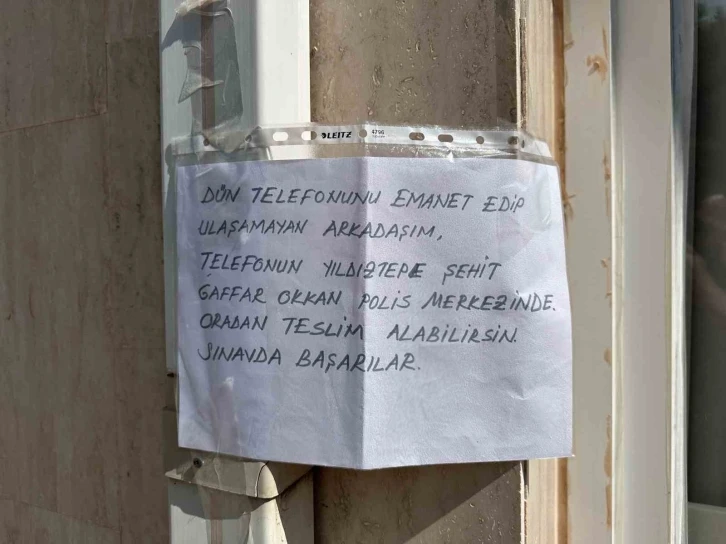 LEITZ 4796
DÜN TELEFONUNU EMANET EDİP
ULAŞAMAYAN ARKADAŞIM,
TELEFONUN YILDIZTEPE ŞEHİT
GAFFAR OKKAN POLİS MERKEZİNDE.
ORADAN TESLİM ALABİLİRSİN.
SINAVDA BAŞARILAR.